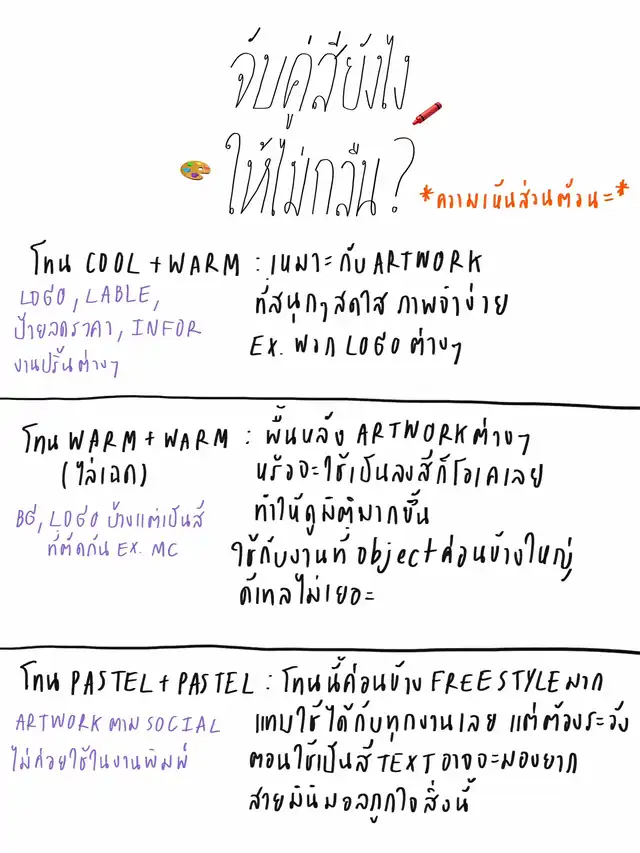 จับคู่สียังไง
ให้ไม่กวน?
*ความเห็นส่วนตัวนะ*
โทน COOL + WARM : เหมาะกับ ARTWORK
ที่สนุกๆสดใส ภาพจำง่าย
EX. พวก LOGO ต่างๆ
LOGO, LABLE,
ป้ายลดราคา, INFOR
งานปริ้นต่างๆ
โทน WARM + WARM : พื้นหลัง ARTWORK ต่างๆ
(ไล่เฉด)
หรือจะใช้เป็นลงสีก็โอเคเลย
ทำให้ดูมิติมากขึ้น
ใช้กับงานที่ object ค่อนข้างใหญ่
ดีเทลไม่เยอะ
BG, LOGO บ้างแต่เป็นสี
ที่ตัดกัน EX. MC
โทน PASTEL + PASTEL : โทนนี้ค่อนข้าง FREESTYLE มาก
แทบใช้ได้กับทุกงานเลย แต่ต้องระวัง
ตอนใช้เป็นสี TEXT อาจจะมองยาก
สายมินิมอลถูกใจสิ่งนี้
ARTWORK ตาม SOCIAL
ไม่ค่อยใช้ในงานพิมพ์